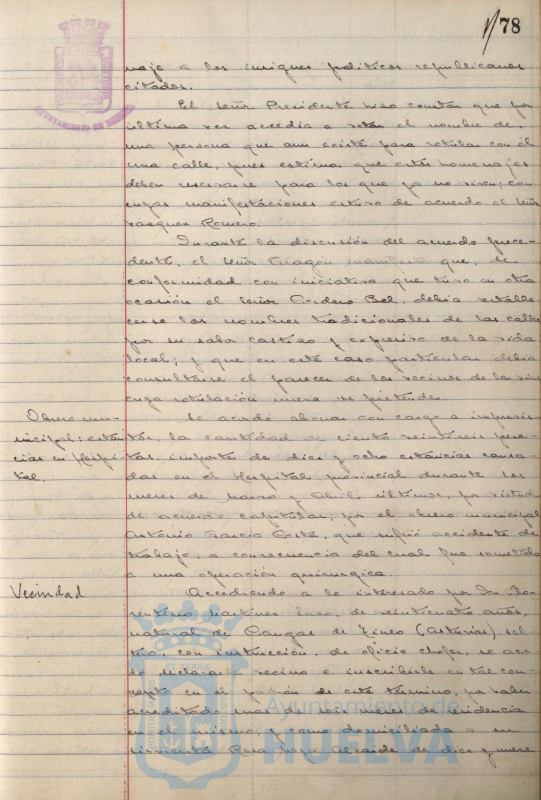 78
naje a los insignes políticos republicanos
citados.
El señor Presidente hizo constar que por
última vez accedía a votar el nombre de
una persona que aun existe para rotular con él
una calle, pues estima que estos homenajes
deben reservarse para los que ya no viven; con
cuyas manifestaciones estuvo de acuerdo el señor
Vázquez Romero.
Durante la discusión del acuerdo prece-
dente, el señor Aragón manifestó que, de
conformidad con iniciativa que tuvo en otra
ocasión el señor Cordero Bel, debía restable-
cerse los nombres tradicionales de las calles
por su sabor castizo y expresivo de la vida
local; y que en este caso particular debía
consultarse el parecer de los vecinos de las vías
cuya rotulación nueva se pretende.
Obrero mu-
nicipal: estan-
cias en Hospi-
tal.
Se acordó abonar con cargo a imprevis-
tos, la cantidad de ciento veintiséis pese-
tas, importe de diez y ocho estancias causa-
das en el Hospital provincial durante los
meses de Marzo y Abril últimos, por virtud
de acuerdo capitular, por el obrero municipal
Antonio García Costa, que sufrió accidente de
trabajo, a consecuencia del cual fue sometido
a una operación quirúrgica.
Vecindad
Accediendo a lo interesado por Don Flo-
rentino Martínez de veinticuatro años,
natural de Cangas de Tineo (Asturias) sol-
tero, con instrucción, de oficio chofer, se acor-
dó declararle vecino e inscribirle en tal con-
cepto en el padrón de este término, por haber
acreditado mas de seis meses de residencia
en el mismo; y como domiciliada a su
sirvienta Rosa Alcaide de diez y nueve
AYUNTAMIENTO DE HUELVA
Ayuntamiento de
HUELVA